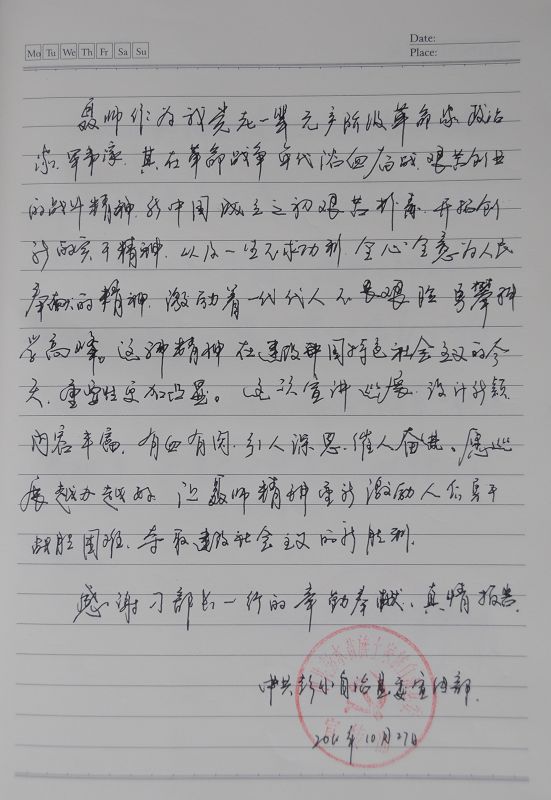 Mo Tu We Th Fr Sa Su
Date:
Place:
聂帅作为我党老一辈无产阶级革命家、政治
家、军事家，其在革命战争年代浴血奋战、艰苦创业
的战斗精神，新中国成立之初艰苦抓奋、开拓创
新的实干精神，以及一生不求功利、全心全意为人民
奉献的精神，激励着一代代人不畏艰险、勇攀科
学高峰。这种精神在建设中国特色社会主义的今
天，重要性更加凸显。这次宣讲巡展，设计新颖、
内容丰富，有血有肉，引人深思，催人奋进。愿巡
展越办越好，让聂帅精神重新激励人们勇于
战胜困难，夺取建设社会主义的新胜利。
感谢刁部长一行的辛勤奉献、真情报告。
中共彭水自治县委宣传部
10月27日